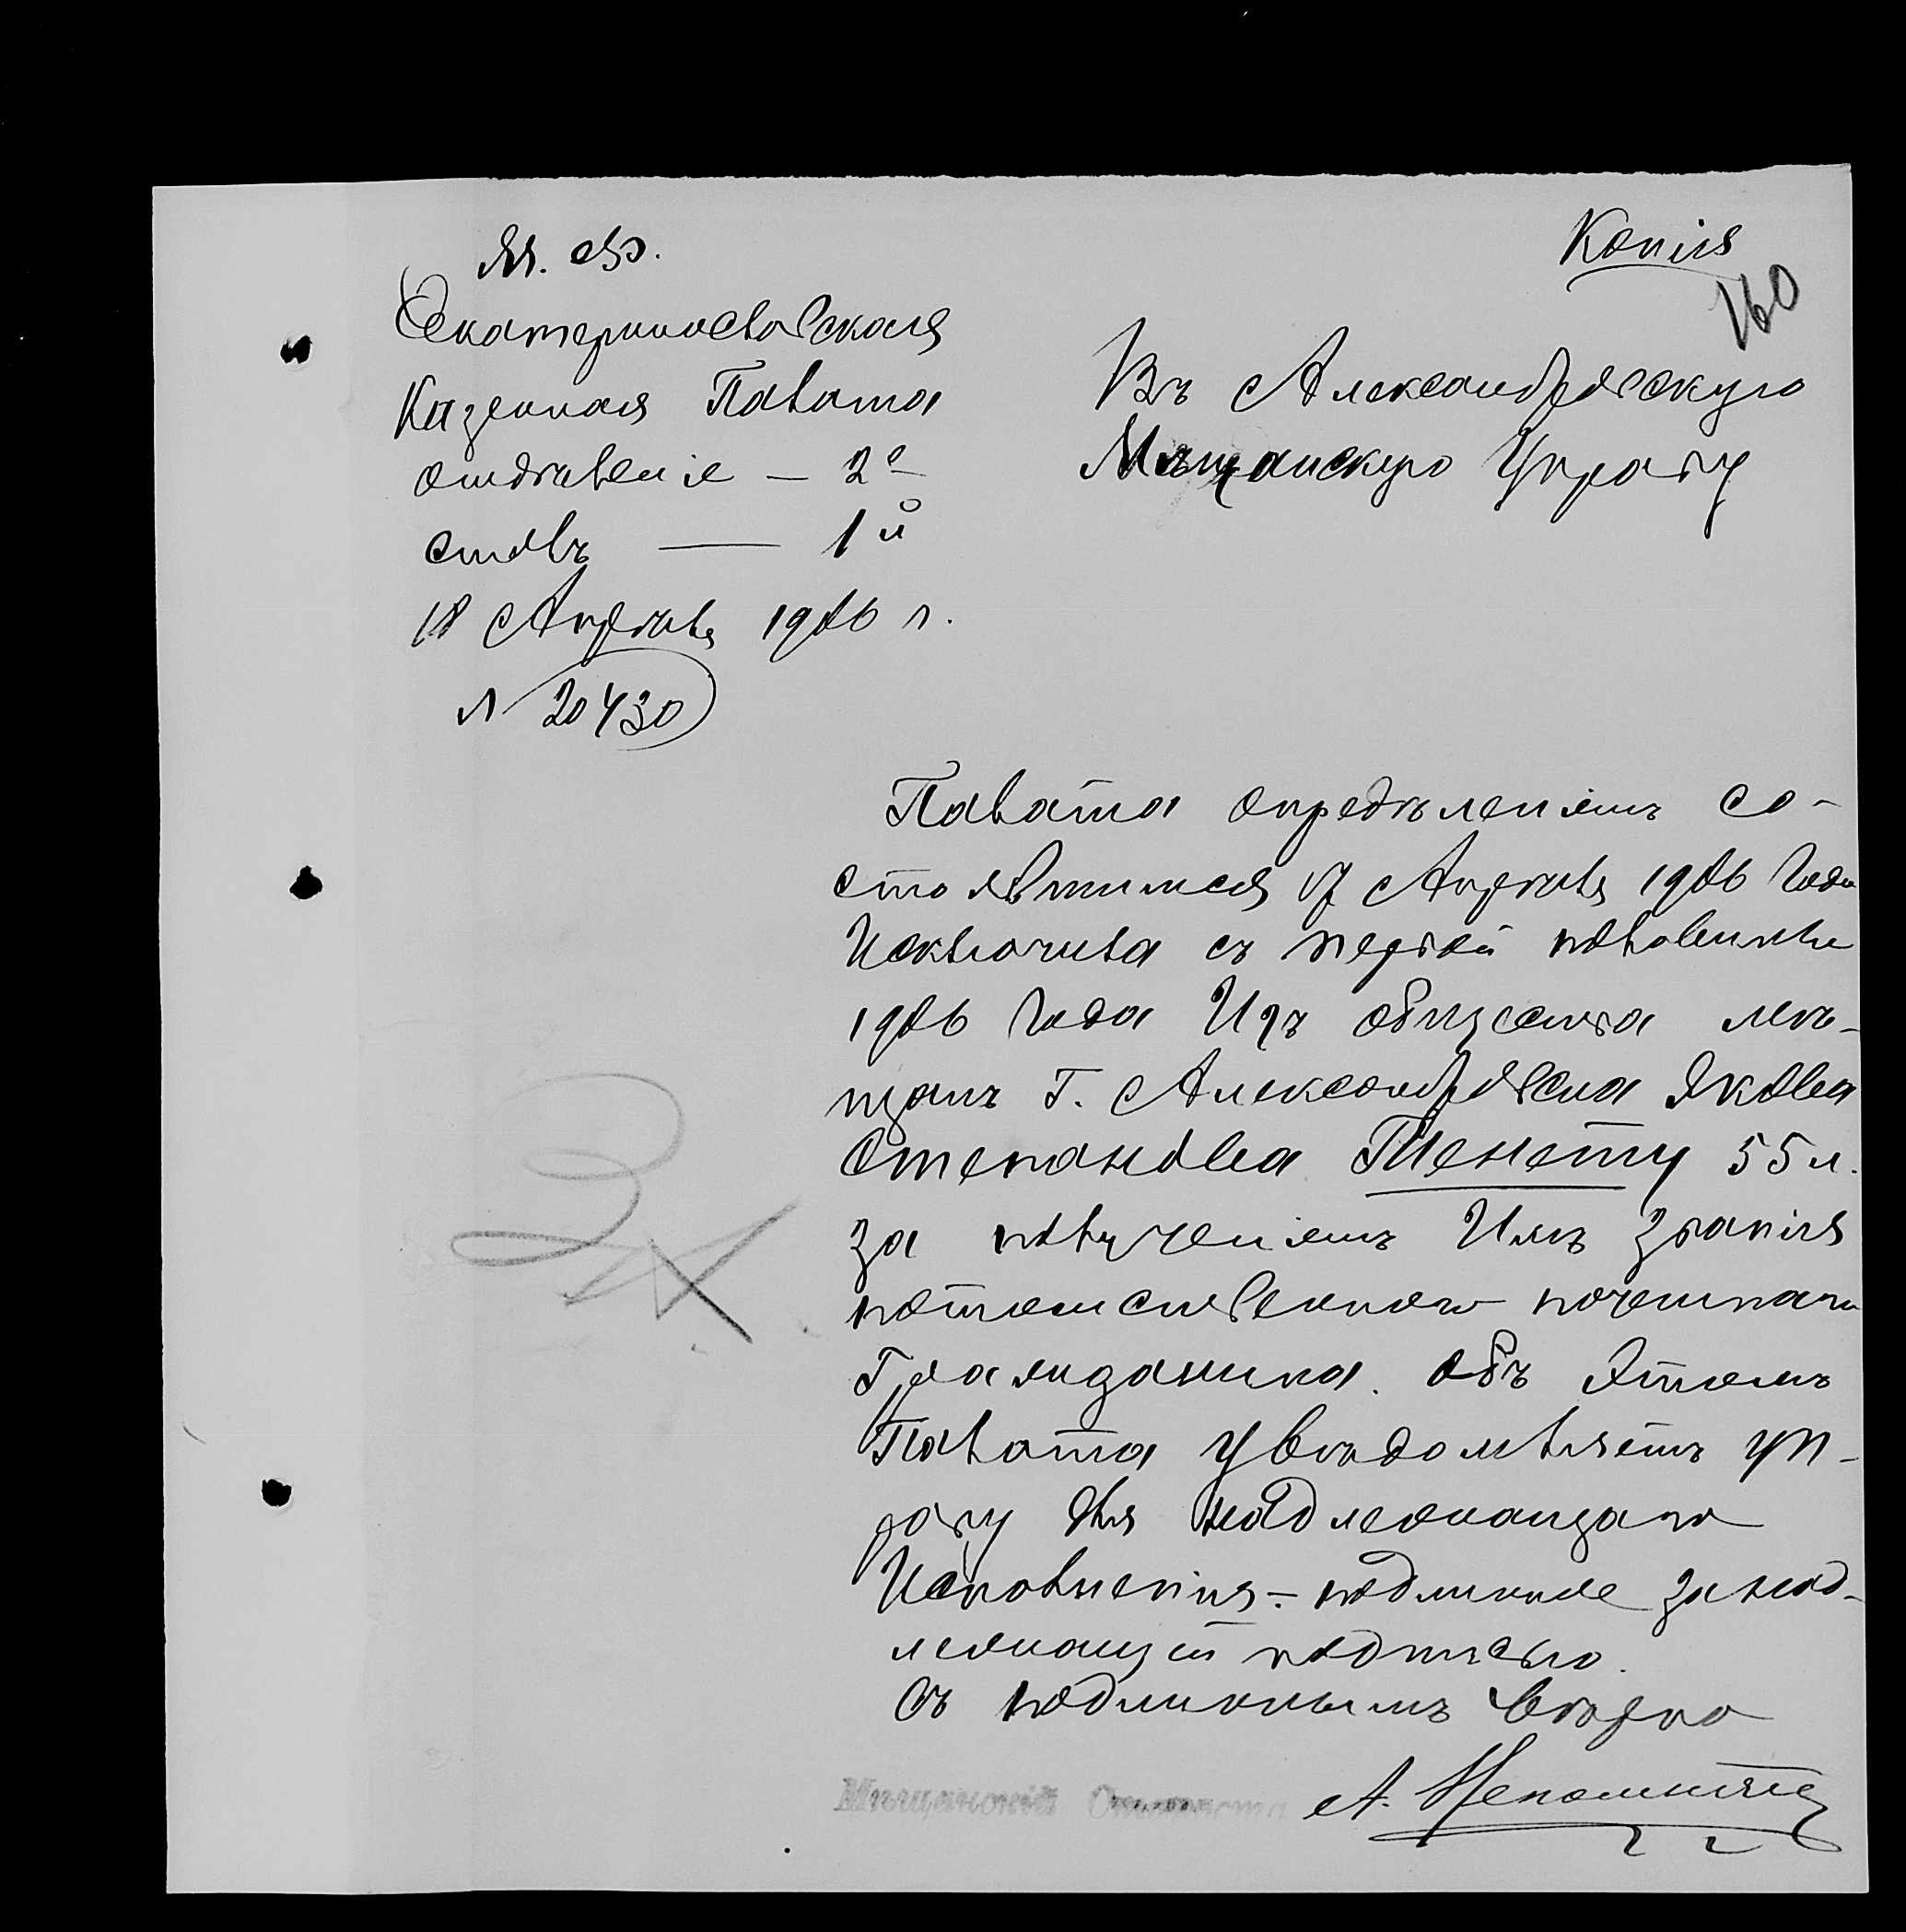 М. Ф.
Копія
160
Екатеринославская
Казенная Палата
отдѣленіе — 2е
столъ — 1й
18 Апрѣля 1906 г.
№ 20430
Въ Александровскую
Мѣщанскую Управу
Палата опредѣленіемъ со-
стоявшимся 17 Апрѣля 1906 года
Исключила съ первой половины
1906 года Изъ общества мѣ-
щанъ г. Александровска Якова
Степанова Тенету 55 л.
за полученіемъ Имъ званія
потомственнаго почетнаго
Гражданина. Объ этомъ
Палата увѣдомляетъ Уп-
раву для надлежащаго
Исполненія. – подлинное за над-
лежащей подписью.
Съ подлиннымъ вѣрно
Мѣщанскій Староста А. Непомнящій